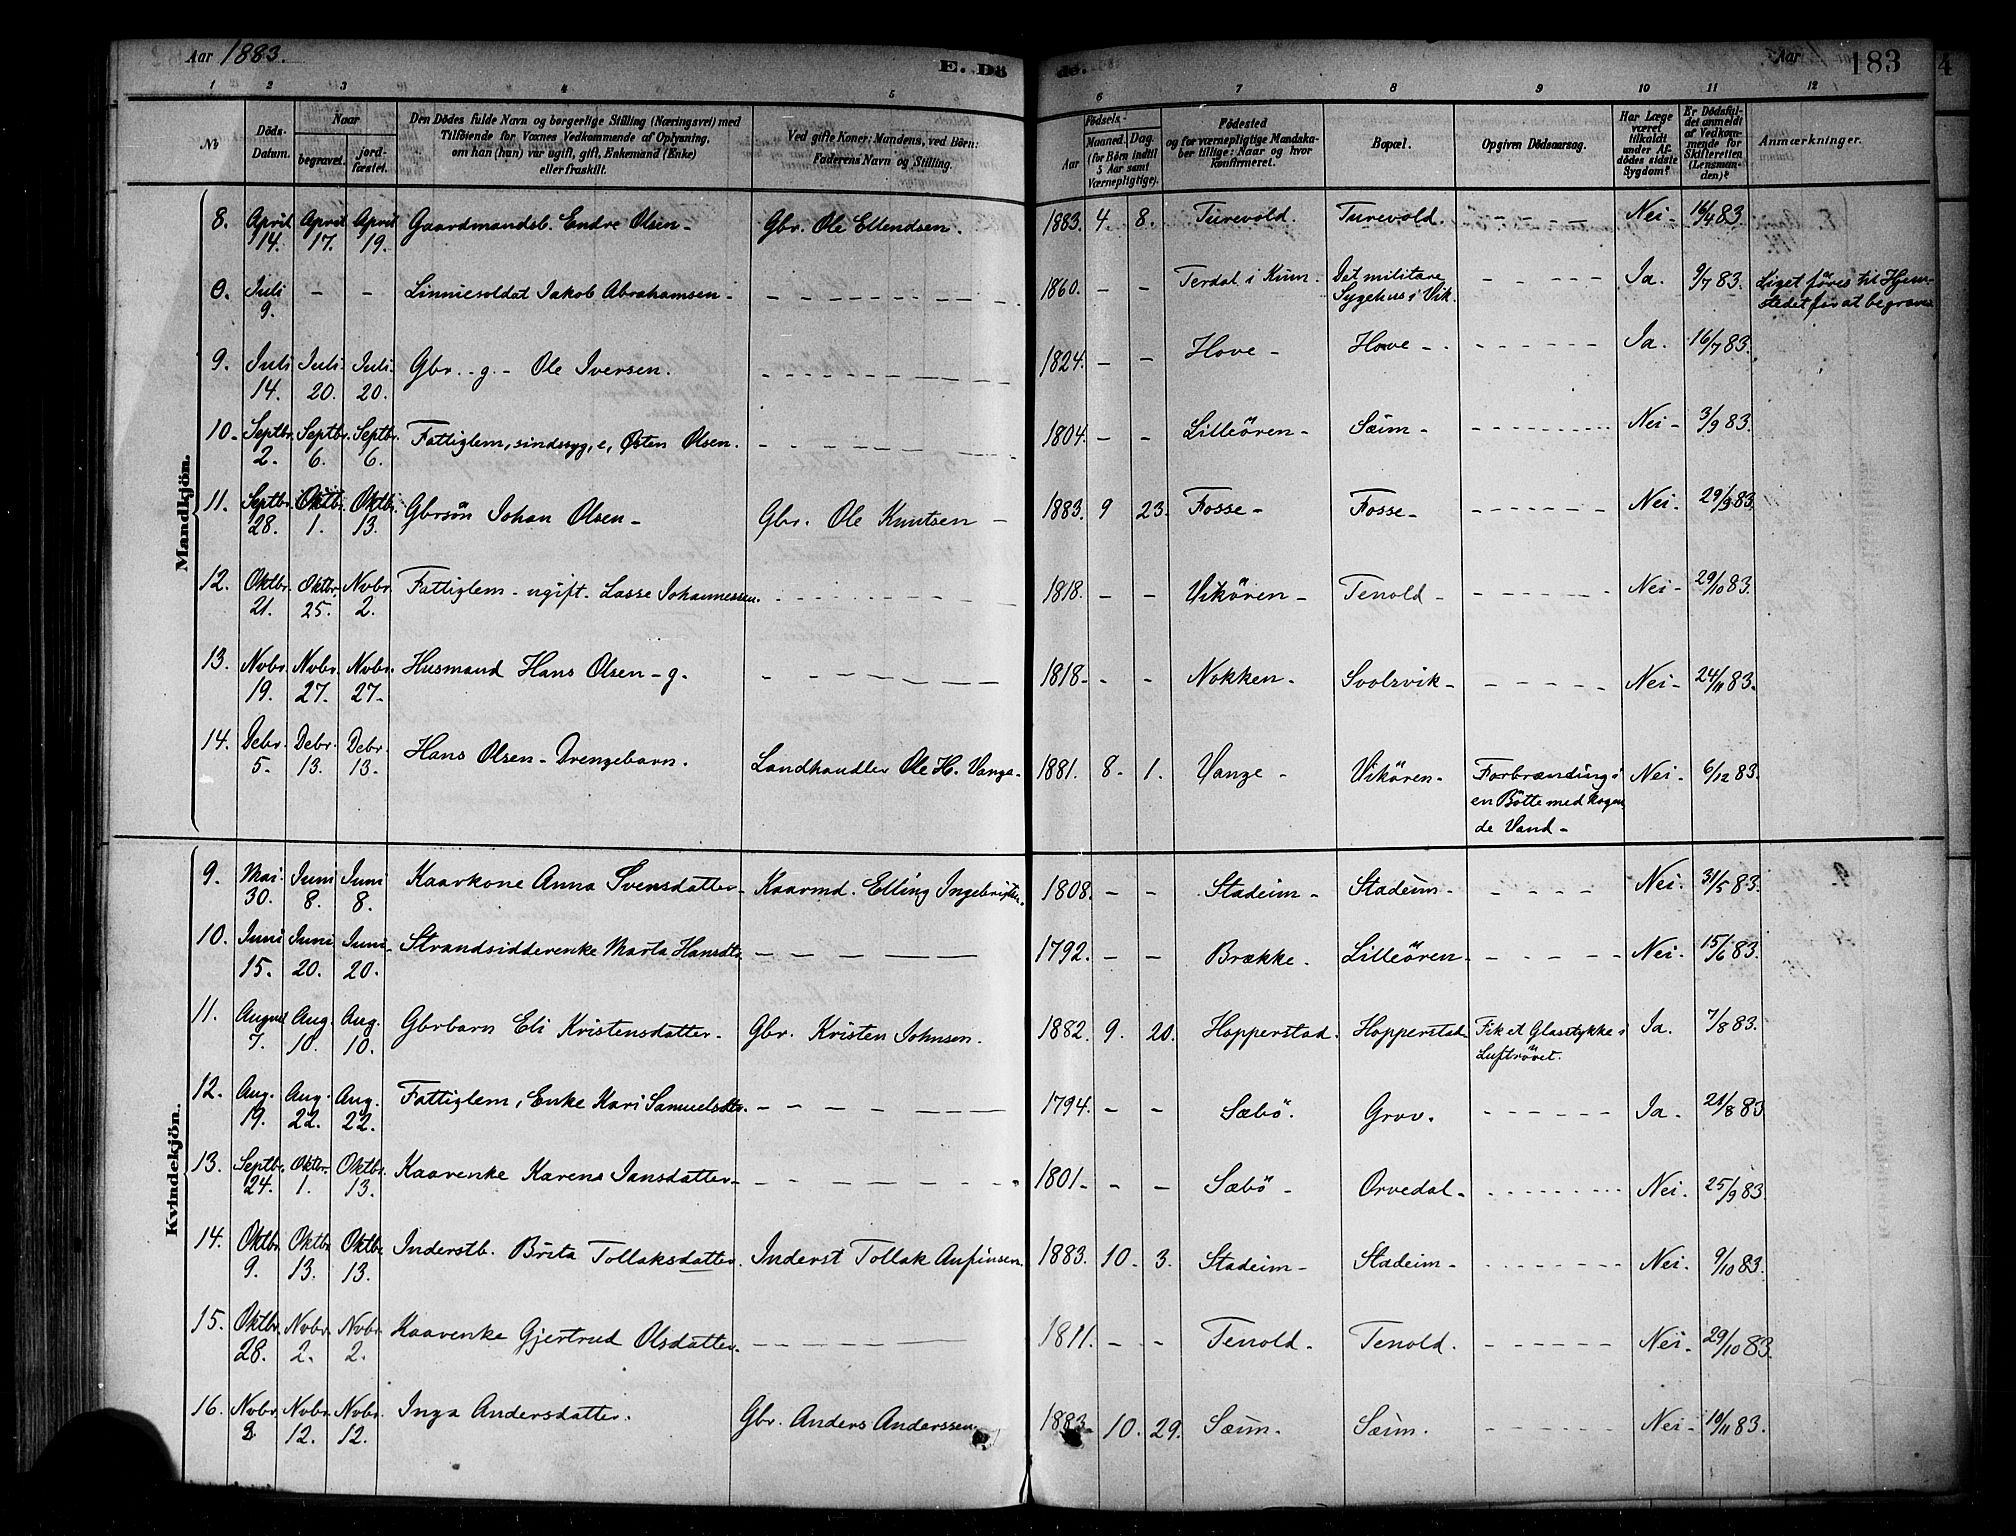 Aar 1883.
E. Dö de.
Aar 183
4
1 2 3 4 5 6 7 8 9 10 11 12
No
Döds-Datum.
Naar
begravet.
jord-fæstet.
Den Dödes fulde Navn og borgerlige Stilling (Næringsvei) med
Tilföiende for Voxnes Vedkommende af Oplysning,
om han (hun) var ugift, gift, Enkemand (Enke)
eller fraskilt.
Ved gifte Koner: Mandens, ved Börn:
Faderens Navn og Stilling.
Födsels-
Aar
Maaned. Dag.
(for Börn indtil
5 Aar samt
Værnepligtige).
Födested
og for værnepligtige Mandska-
ber tillige: Naar og hvor
konfirmeret.
Bopæl.
Opgiven Dödsaarsag.
Har Læge
været
tilkaldt
under Af-
dödes sidste
Sygdom?
Er Dödsfal-
det anmeldt
af Vedkom-
mende for
Skifteretten
(Lensman-
den)?
Anmærkninger.
Mandkjön.
8. April 14. April 17. April 19. Gaardmandsb. Endre Olsen - Gbr. Ole Ellendsen. 1883. 4 8. Turevold. Turevold - - - - Nei - 16/4 83.
0. Juli 9. - - Linniesoldat Jakob Abrahamsen - - - - - 1860. - - Terdal i Kinn. Det militære Sygehus i Vik. - - - - Ja. 9/7 83. Liget föres til Hjem-
stedet for at begraves
9. Juli 14. Juli. 20. Juli. 20. Gbr. - g - Ole Iversen. - - - - 1824. - - Hove - Hove - - - - - Ja. 16/7 83.
10. Septbr. 2. Septbr. 6. Septbr. 6. Fattiglem, sindssyg, e, Østen Olsen. - - - - 1804. - - Lilleören - Sæim - - - - - Nei - 3/9 83.
11. Septbr. 28. Oktb. 1. Oktb. 13. Gbrsön Johan Olsen - Gbr. Ole Knutsen - 1883. 9 23. Fosse - Fosse - - - - - Nei. 29/9 83.
12. Oktbr. 21. Oktbr. 25. Novbr. 2. Fattiglem - ugift - Lasse Johannessen. - - - - 1818. - - Vikören - Tenold - - - - - Nei - 29/10 83.
13. Nvbr. 19. Nvbr. 27. Nvbr. 27. Husmand Hans Olsen - g. - - - - 1818 - - - Nokken - Svolsvik - - - - - Nei - 24/11 83.
14. Debr. 5. Debr. 13. Debr. 13. Hans Olsen - Drengebarn. Landhandler Ole H. Vange - 1881. 8. 1. Vange - Vikören - Forbrænding i
en Bötte med kogen
de Vand - Nei - 6/12 83.
Kvindekjön.
9. Mai. 30. Juni 8. Juni 8. Kaarkone Anna Svensdatter - Kaarmd. Elling Ingebrigtsen. 1808. - - Stadeim - Stadeim - - - - - Nei - 31/5 83.
10. Juni 15. Juni 20. Juni 20. Strandsidderenke Marta Hansdtr. - - - - 1792. - - Brække. Lilleören - - - - - Nei - 15/6 83.
11. August 7. Aug. 10. Aug. 10. Gbrbarn Eli Kristensdatter. Gbr. Kristen Johnsen. 1882. 9. 20. Hopperstad. Hopperstad Fik et Glasstykke i
Luftröret. Ja. 7/8 83.
12. Aug. 19. Aug. 22. Aug. 22. Fattiglem, Enke Kari Samuelsdtr. - - - - 1794. - - Sæbö. Grov. - - - - Ja. 21/8 83
13. Septbr. 24. Oktbr. 1. Oktbr. 13. Kaarenke Karens Jansdatter - - - - - 1801 - - - Sæbö - Orvedal - - - - - Nei. 25/9 83.
14. Oktbr. 9. Oktbr 13. Oktbr 13. Inderstb. Brita Tollaksdatter. Inderst Tollak Anfinsen. 1883. 10. 3. Stadeim - Stadeim - - - - - Nei. 9/10 83.
15. Oktbr. 28. Nvbr. 2. Nvbr. 2. Kaarenke Gjertrud Olsdatter. - - - - 1811. - - Tenold. Tenold. - - - - Nei - 29/10 83.
16. Nvbr. Nvbr. 12. Nvbr. 12. Inga Andersdatter. Gbr. Anders Anderssen 1883 - 10. 29. Sæim - Sæim. - - - - Nei - 10/11 83.